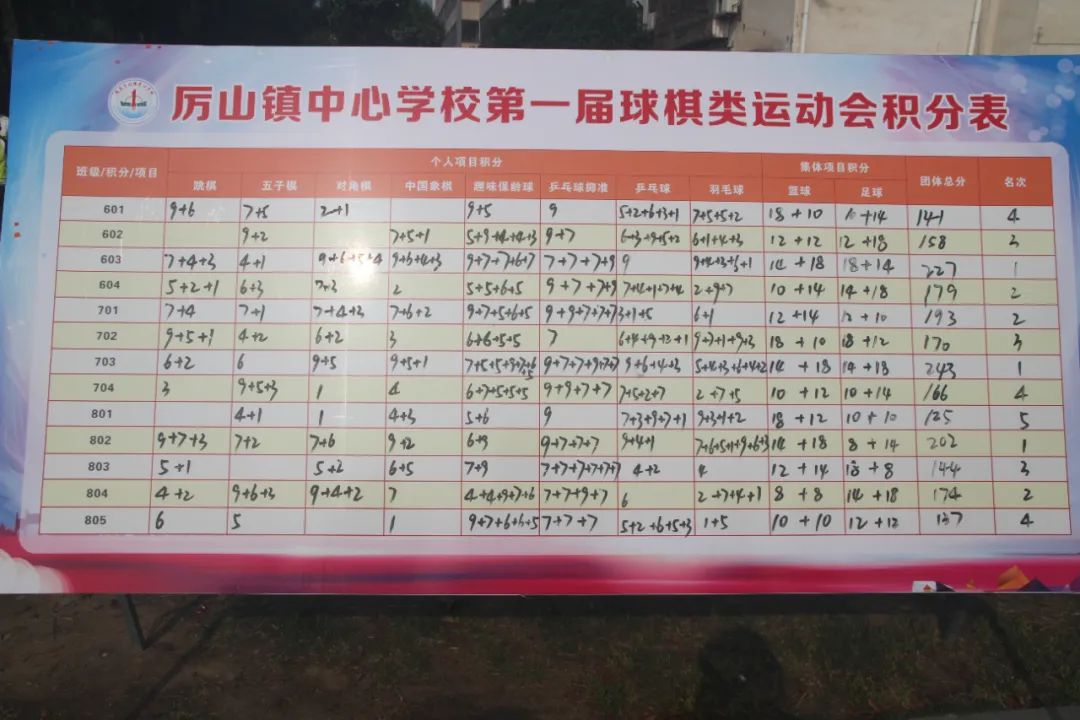 厉山镇中心学校第一届球棋类运动会积分表
班级/积分/项目 个人项目积分 集体项目积分 团体总分 名次
跳棋 五子棋 对角棋 中国象棋 趣味保龄球 乒乓球掷准 乒乓球 羽毛球 篮球 足球
601 9+6 7+5 2+1 9+5 9 5+2+6+3+1 7+5+5+2 18+10 10+14 141 4
602 9+2 7+5+1 5+9+4+4+3 9+7 6+3+9+5+2 6+1+4+3 12+12 12+18 158 3
603 7+4+3 4+1 9+6+5+4 9+6+4+3 9+7+7+6+7 7+7+7+9 9 9+4+3+5+1 14+18 18+14 227 1
604 5+2+1 6+3 7+3 2 5+5+6+5 9+7+7+9 7+4+1+7+4 2+9+7 10+14 14+18 179 2
701 7+4 7+1 7+4+3 7+6+2 9+7+5+6+5 9+9+7+7+7 3+1+5 6+1 12+14 12+10 193 2
702 9+5+1 4+2 6+2 3 6+6+5+5 7 6+4+9+2+1 9+7+1+9+3 18+10 18+12 170 3
703 6+2 6 9+5 9+5+1 7+5+5+9+7+6+5 9+7+7+9+7+7 9+6+4+3 5+4+3+6+4+2 14+18 14+18 243 1
704 3 9+5+3 1 4 6+7+5+5+5 9+9+7+7 7+5+2+7 2+7+5 10+12 10+14 166 4
801 4+1 1 4+3 5+6 9 7+3+9+7+1 9+3+1+2 18+12 10+10 125 5
802 9+7+3 7+2 7+6 9+2 6+9 9+7+7+7 9+4+1 7+6+5+1+9+6+3 14+18 8+14 202 1
803 5+1 5+2 6+5 7+9 7+7+7+7+7+7 4+2 4 12+14 18+8 144 3
804 4+2 9+6+3 9+4+2 7 4+4+9+7+6 7+7+9+7 6 2+7+4+1 8+8 14+18 174 2
805 6 5 1 9+7+6+6+5 7+7+7 5+2+6+5+3 1+5 10+10 12+12 137 4